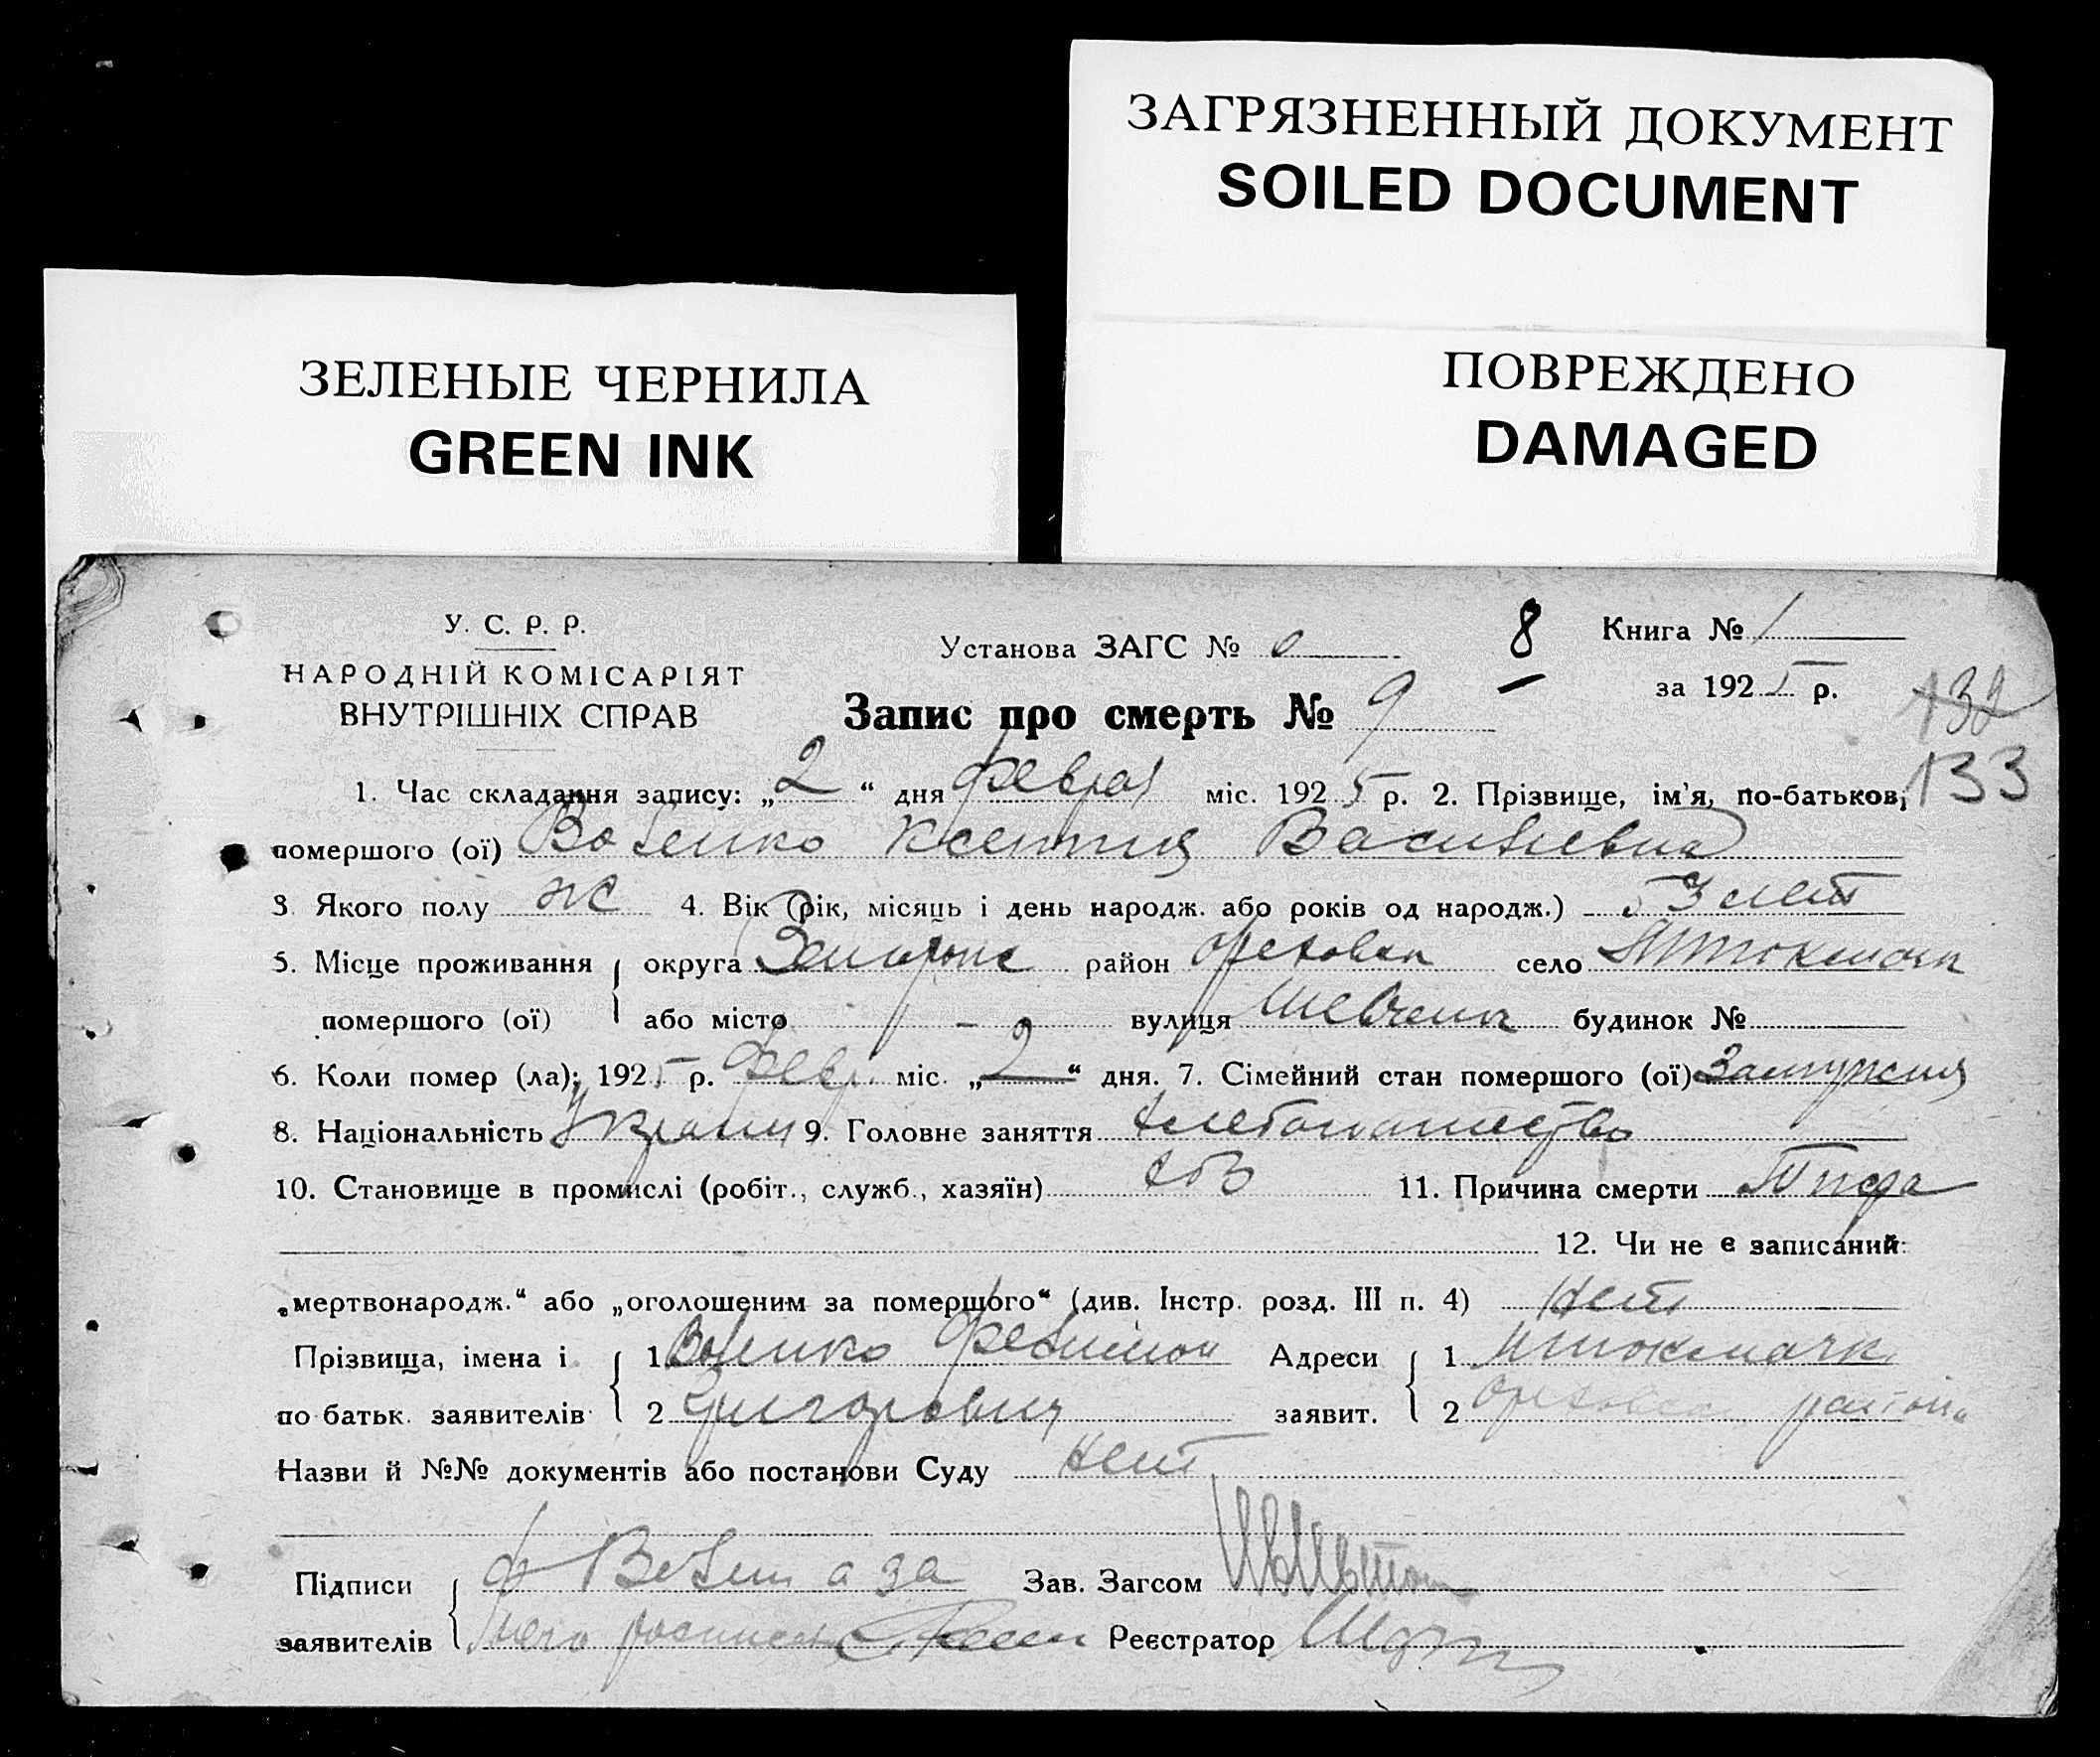 ЗАГРЯЗНЕННЫЙ ДОКУМЕНТ
SOILED DOCUMENT
ЗЕЛЕНЫЕ ЧЕРНИЛА
GREEN INK
ПОВРЕЖДЕНО
DAMAGED
У. С. Р. Р.
НАРОДНІЙ КОМІСАРІЯТ
ВНУТРІШНІХ СПРАВ
Установа ЗАГС №
8
Книга № 1
за 1925 р.
132
Запис про смерть № 9
133
1. Час складання запису: „2“ дня Феврал міс. 1925 р. 2. Прізвище, ім'я, по-батькові
помершого (ої) Ксения Васильевна
3. Якого полу ж 4. Вік (рік, місяць і день народж. або років од народж.) 53 лет
5. Місце проживання округа Запорож район Ореховск село
помершого (ої) або місто - вулиця Шевченк будинок №
6. Коли помер (ла); 1925 р. Февр. міс. „2“ дня. 7. Сімейний стан помершого (ої) Замужния
8. Національність Украин 9. Головне заняття хлебопашество
10. Становище в промислі (робіт., служб., хазяїн) 11. Причина смерти Тифа
12. Чи не є записаний:
„мертвонародж.“ або „оголошеним за помершого“ (див. Інстр. розд. III п. 4) Нет
Прізвища, імена і 1 Адреси 1
по батьк. заявителів 2 Григорович заявит. 2 Ореховск района
Назви й №№ документів або постанови Суду Нет
Підписи а за Зав. Загсом
заявителів Реєстратор